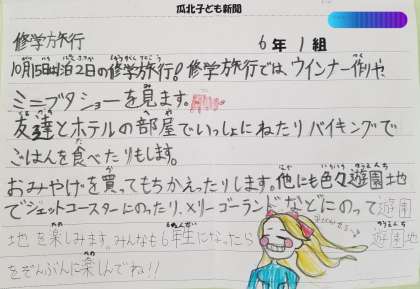 瓜北子ども新聞
修学旅行
6年1組
10月15日は1泊2日の修学旅行!修学旅行では、ウインナー作りや
ミニブタショーを見ます。
友達とホテルの部屋でいっしょにねたりバイキングで
ごはんを食べたりもします。
おみやげを買ってもちかえったりします。他にも色々遊園地
でジェットコースターにのったり、メリーゴーランドなどにのって遊園
地を楽しみます。みんなも6年生になったら遊園地
をぞんぶんに楽しんでね!!